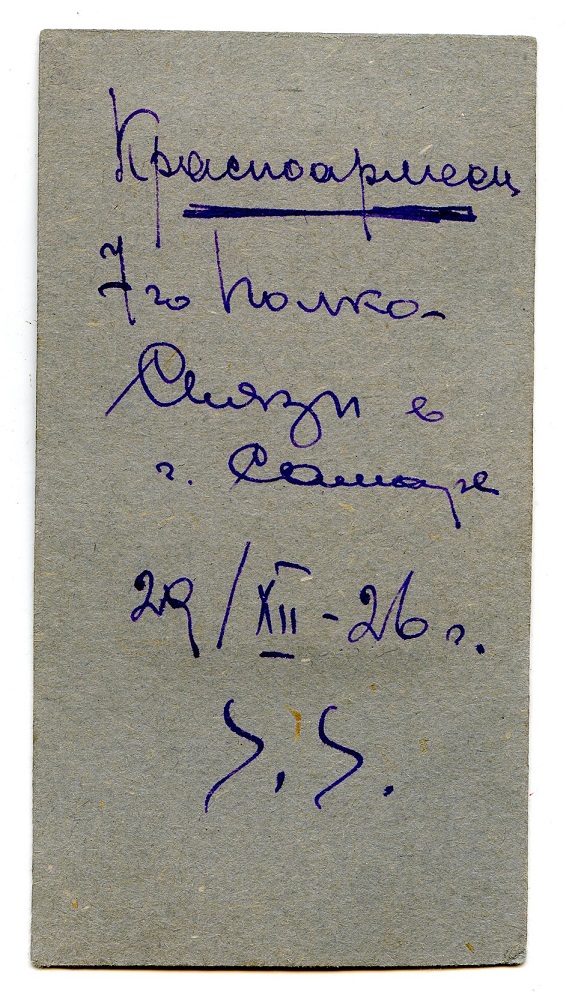 Красноармеец
7го полка
Связи в
г. Самаре
29/XII-26 г.
S.S.